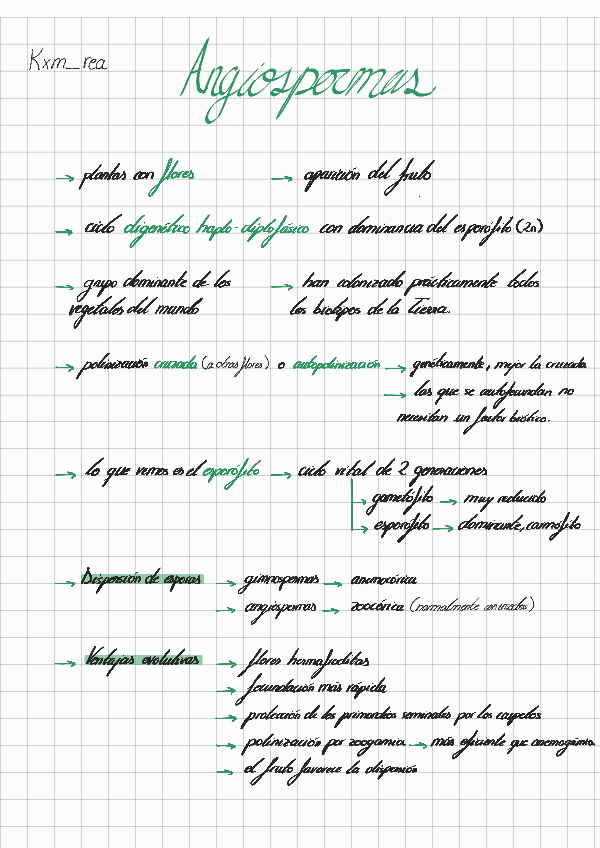 Kxm_rea
Angiospermas
→ plantas con flores → aparición del fruto
→ ciclo digenético haplo-diplofásico con dominancia del esporófito (2n)
→ grupo dominante de los → han colonizado prácticamente todos
vegetales del mundo los biotopos de la Tierra.
→ polinización cruzada (a otras flores) o autopolinización → genéticamente, mejor la cruzada
→ las que se autofecundan no
necesitan un factor biótico.
→ lo que vemos es el esporófito → ciclo vital de 2 generaciones
→ gametófito → muy reducido
→ esporófito → dominante, cormófito
→ Dispersión de esporas → gimnospermas → anemocórica
→ angiospermas → zoocórica (normalmente
→ Ventajas evolutivas → flores hermafroditas
→ fecundación más rápida
→ protección de los primordios seminales por los carpelos
→ polinización por zoogamia → más eficiente que anemogamia
→ el fruto favorece la dispersión